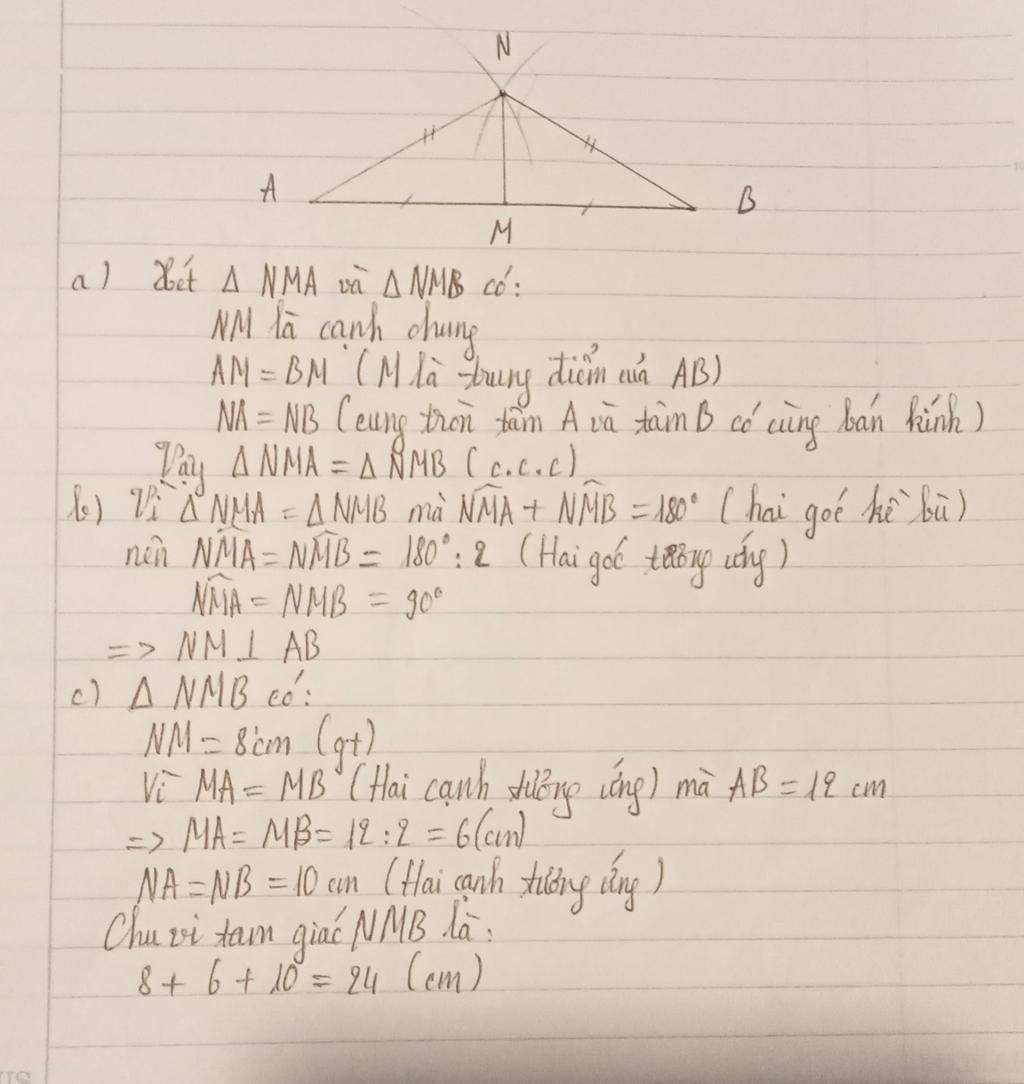 N
A
B
M
a) Xét Δ NMA và Δ NMB có:
NM là cạnh chung
AM = BM (M là trung điểm của AB)
NA = NB (cung tròn tâm A và tâm B có cùng bán kính)
Vậy Δ NMA = Δ NMB (c.c.c)
b) Vì Δ NMA = Δ NMB mà N̂MA + N̂MB = 180° (hai góc kề bù)
nên N̂MA = N̂MB = 180° : 2 (Hai góc tương ứng)
N̂MA = NMB = 90°
=> NM ⊥ AB
c) Δ NMB có:
NM = 8cm (gt)
Vì MA = MB (Hai cạnh tương ứng) mà AB = 12 cm
=> MA = MB = 12 : 2 = 6(cm)
NA = NB = 10 cm (Hai cạnh tương ứng)
Chu vi tam giác NMB là:
8 + 6 + 10 = 24 (cm)